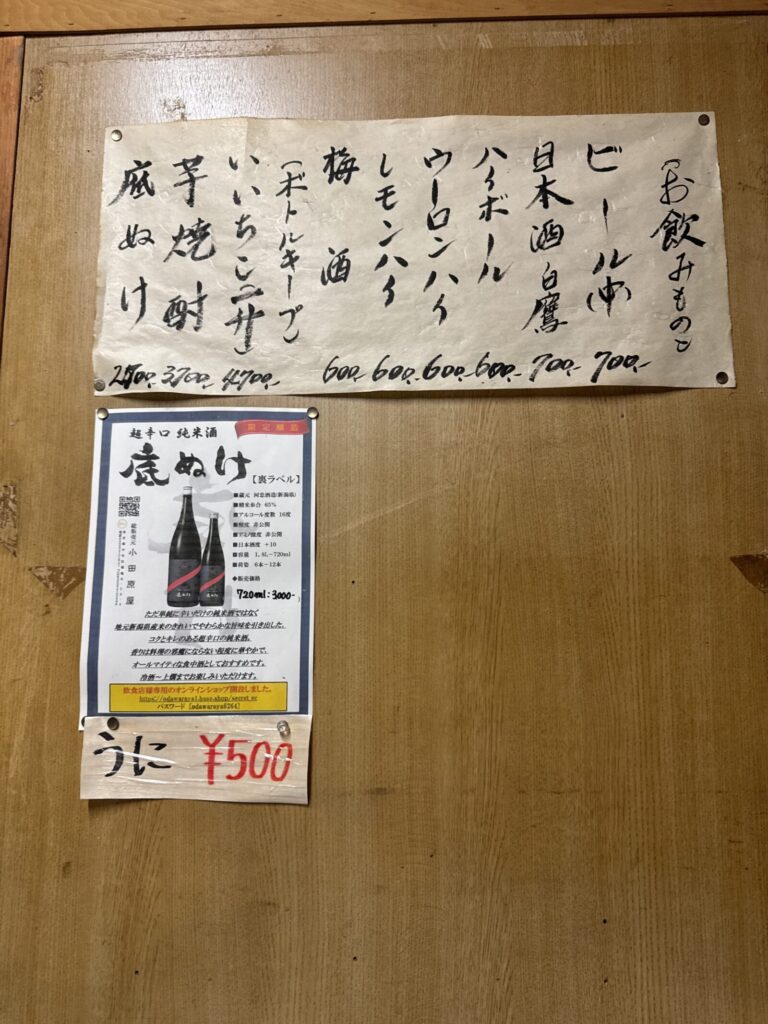 〔お飲みもの〕
ビール(中) 700.-
日本酒 白鷹 700.-
ハイボール 600.-
ウーロンハイ 600.-
レモンハイ 600.-
梅酒 600.-
〔ボトルキープ〕
いいちこ 4700.-
芋焼酎 3700.-
底ぬけ
限定醸造
超辛口 純米酒
底ぬけ
【裏ラベル】
■蔵元 河忠酒造(新潟県)
■精米歩合 65%
■アルコール度数 16度
■酸度 非公開
■アミノ酸度 非公開
■日本酒度 +10
■容量 1.8L-720ml
■荷姿 6本-12本
◆販売価格
720ml:3000-
総販売元 小田原屋
底ぬけ
ただ単純に辛いだけの純米酒ではなく
地元新潟県産米のきれいでやわらかな旨味を引き出した、
コクとキレのある超辛口の純米酒。
香りは料理の邪魔にならない程度に華やかで、
オールマイティな食中酒としておすすめです。
冷酒～上燗までお楽しみいただけます。
飲食店様専用のオンラインショップ開設しました。
https://odawaraya1.base.shop/secret_ec
パスワード [odawaraya8264]
うに ¥500